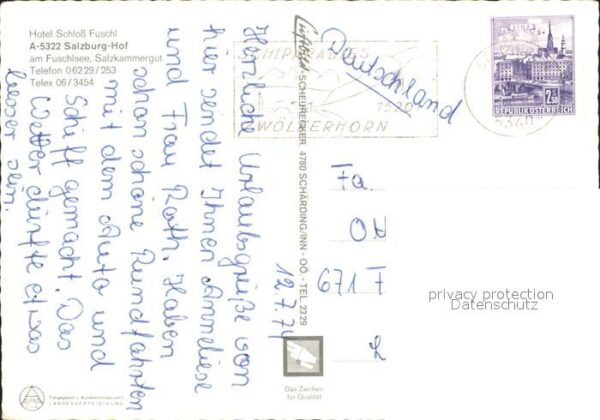 Hotel Schloß Fuschl
A-5322 Salzburg-Hof
am Fuschlsee, Salzkammergut
Telefon 06229/253
Telex 06/3454
Herzliche Urlaubsgrüße von
hier sendet Ihnen Anneliese
und Frau Roth. Haben
schon schöne Rundfahrten
mit dem Auto und
Schiff gemacht. Das
Wetter dürfte etwas
besser sein.
12.7.74
SCHEURECKER 4780 SCHÄRDING/INN - OÖ. - TEL. 2329
1520
WÖLTERHORN
REPUBLIK ÖSTERREICH
Deutschland
Fa.
OH
671 F
L
privacy protection
Datenschutz
Das Zeichen
für Qualität
LANDESVERTEIDIGUNG